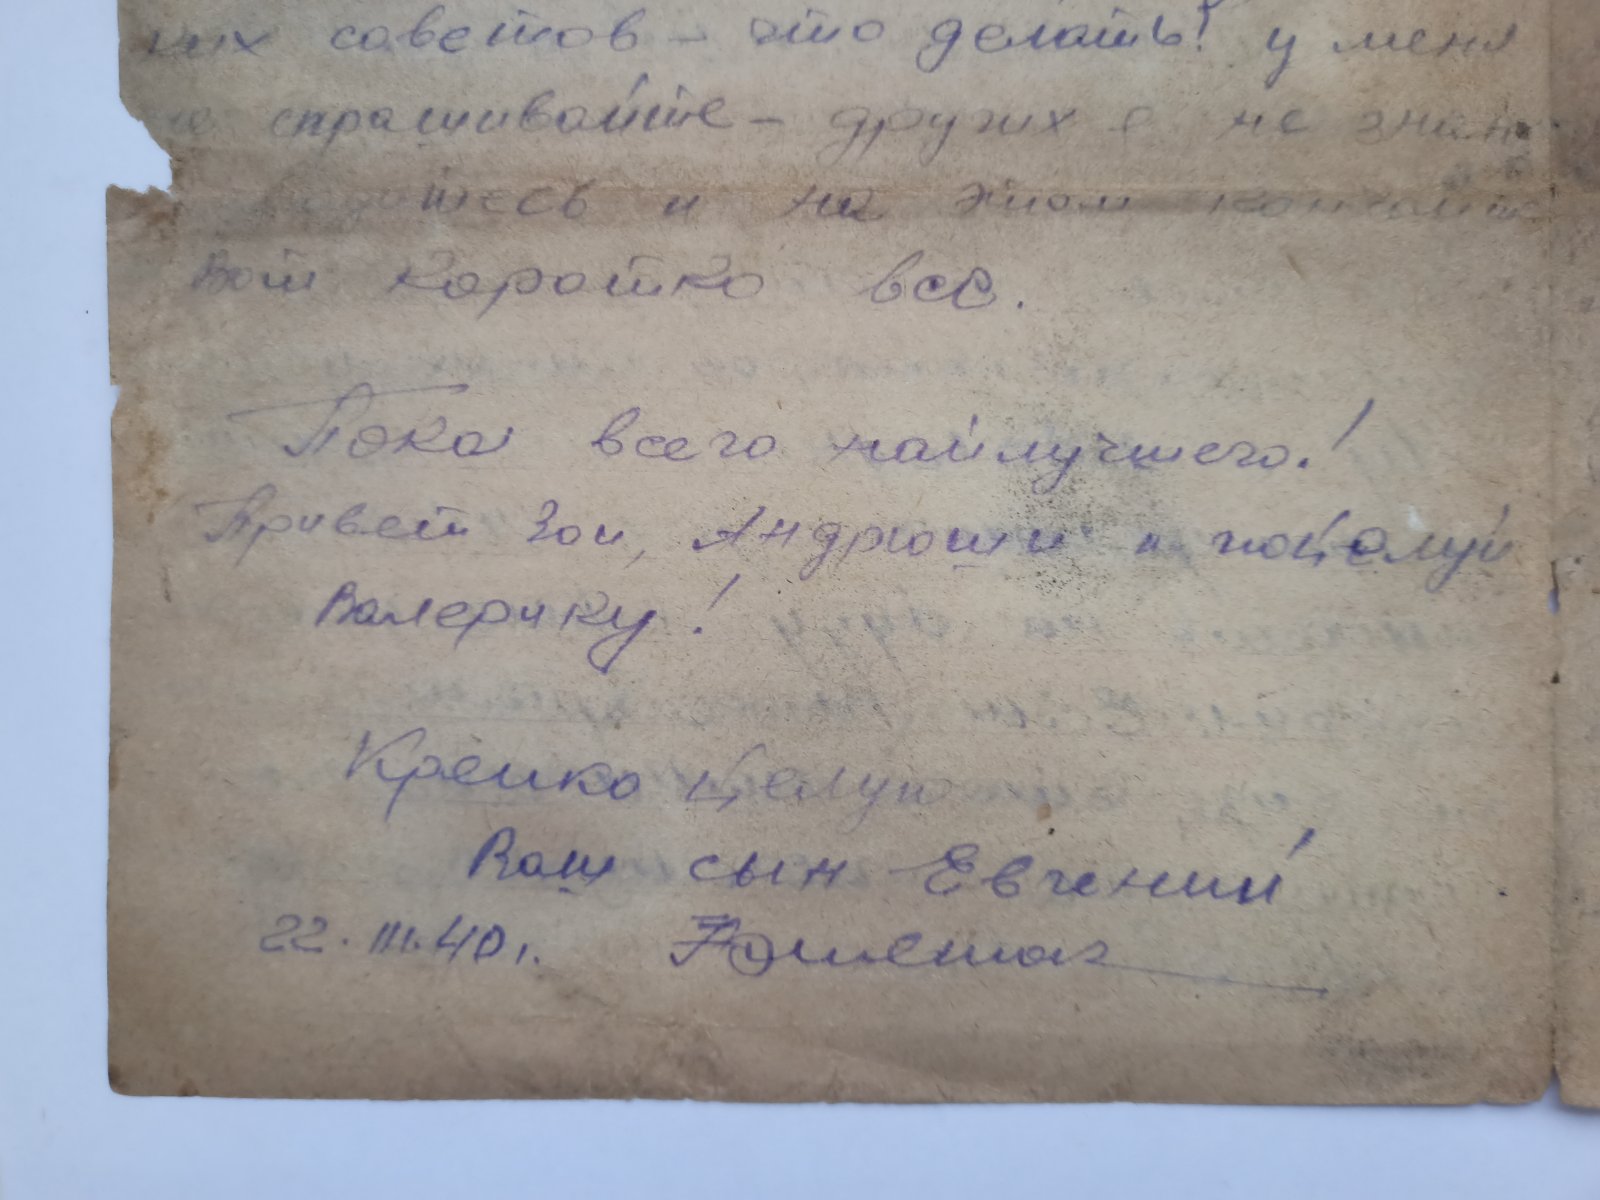 них советов - что делать! у меня
не спрашивайте - других я не знаю
и на этом кончайте
Вот коротко всё.
Пока всего найлучшего!
Привет Зои, Андрюши и поцелуй
Валерику!
Крепко целую
Ваш сын Евгений
22.III.40г.